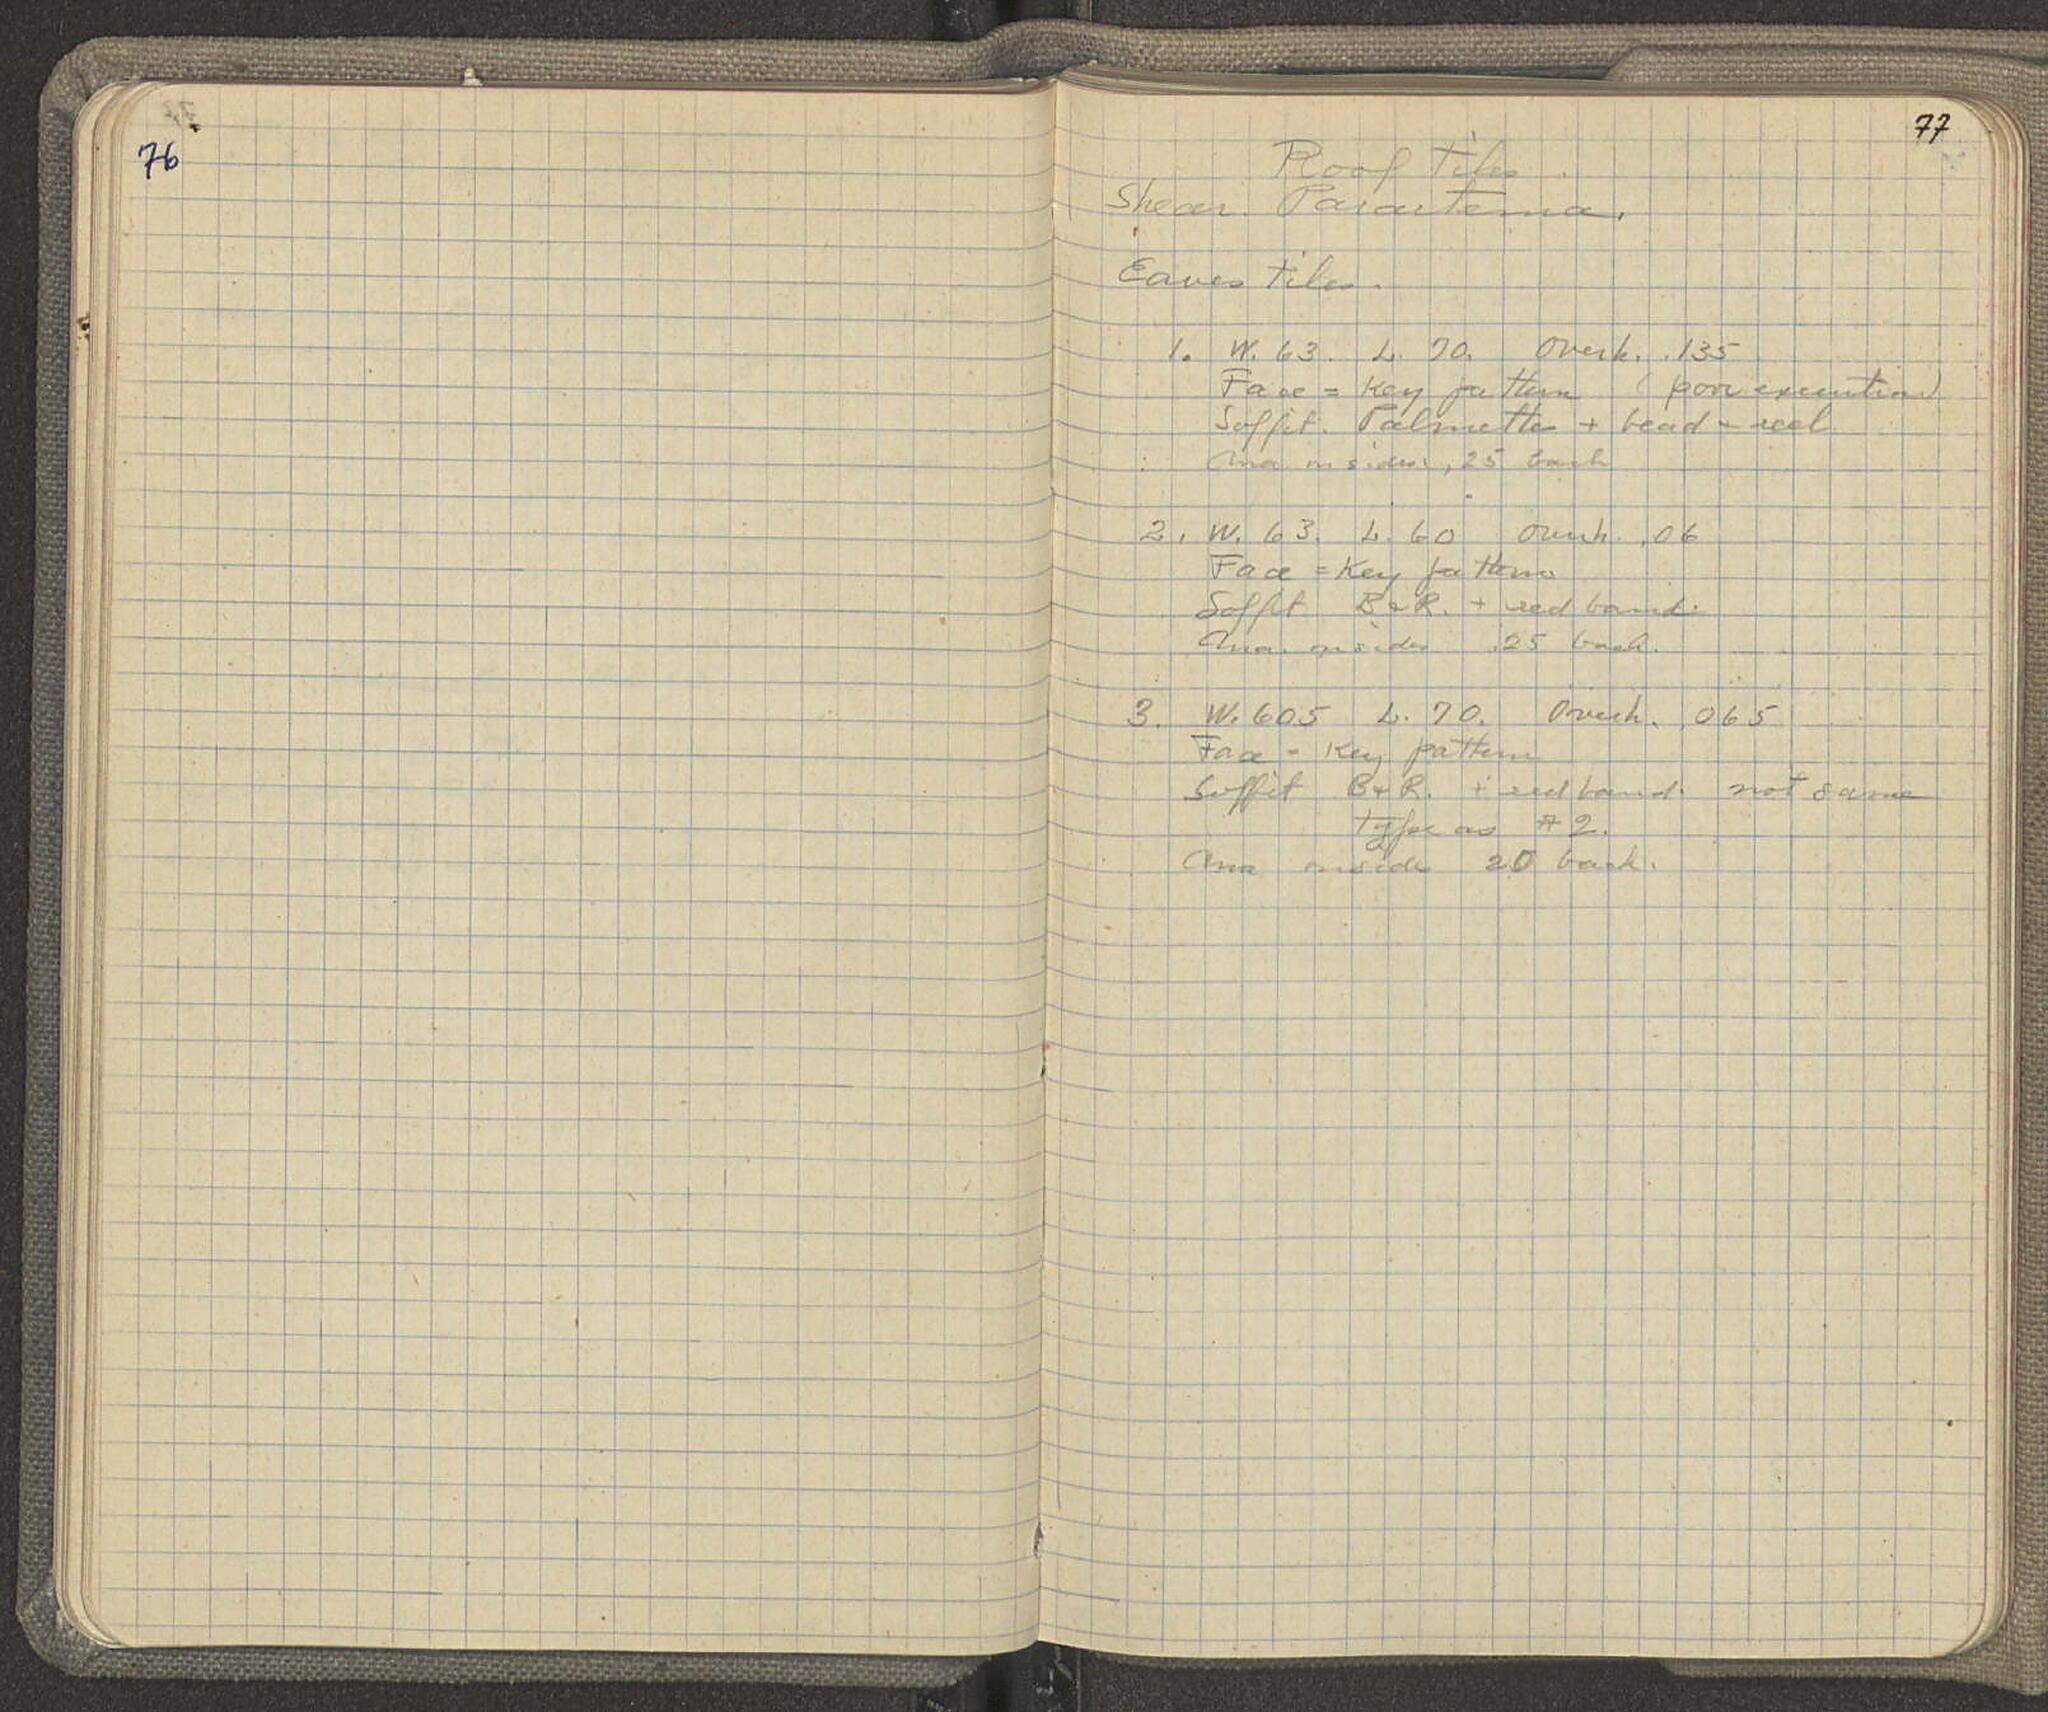 76
77
Roof Tiles.
Shear. Parartema.
Eaves tiles.
1. W. 63. L. 70. Overh. .135
Face = Key pattern (poor execution)
Soffit. Palmettes + bead + reel
on sides .25 back
2. W. 63. L. 60 Overh. .06
Face = Key pattern
Soffit B+R. + red band.
on sides .25 back.
3. W. 605 L. 70. Overh. .065
Face = Key pattern
Soffit B+R. + red band. not same
type as #2.
on sides 20 back.